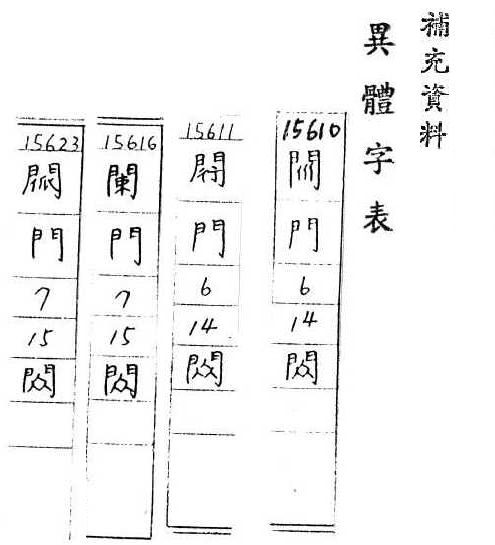 補充資料
異體字表
15610
門
6
14
閦
15611
門
6
14
閦
15616
門
7
15
閦
15623
門
7
15
閦